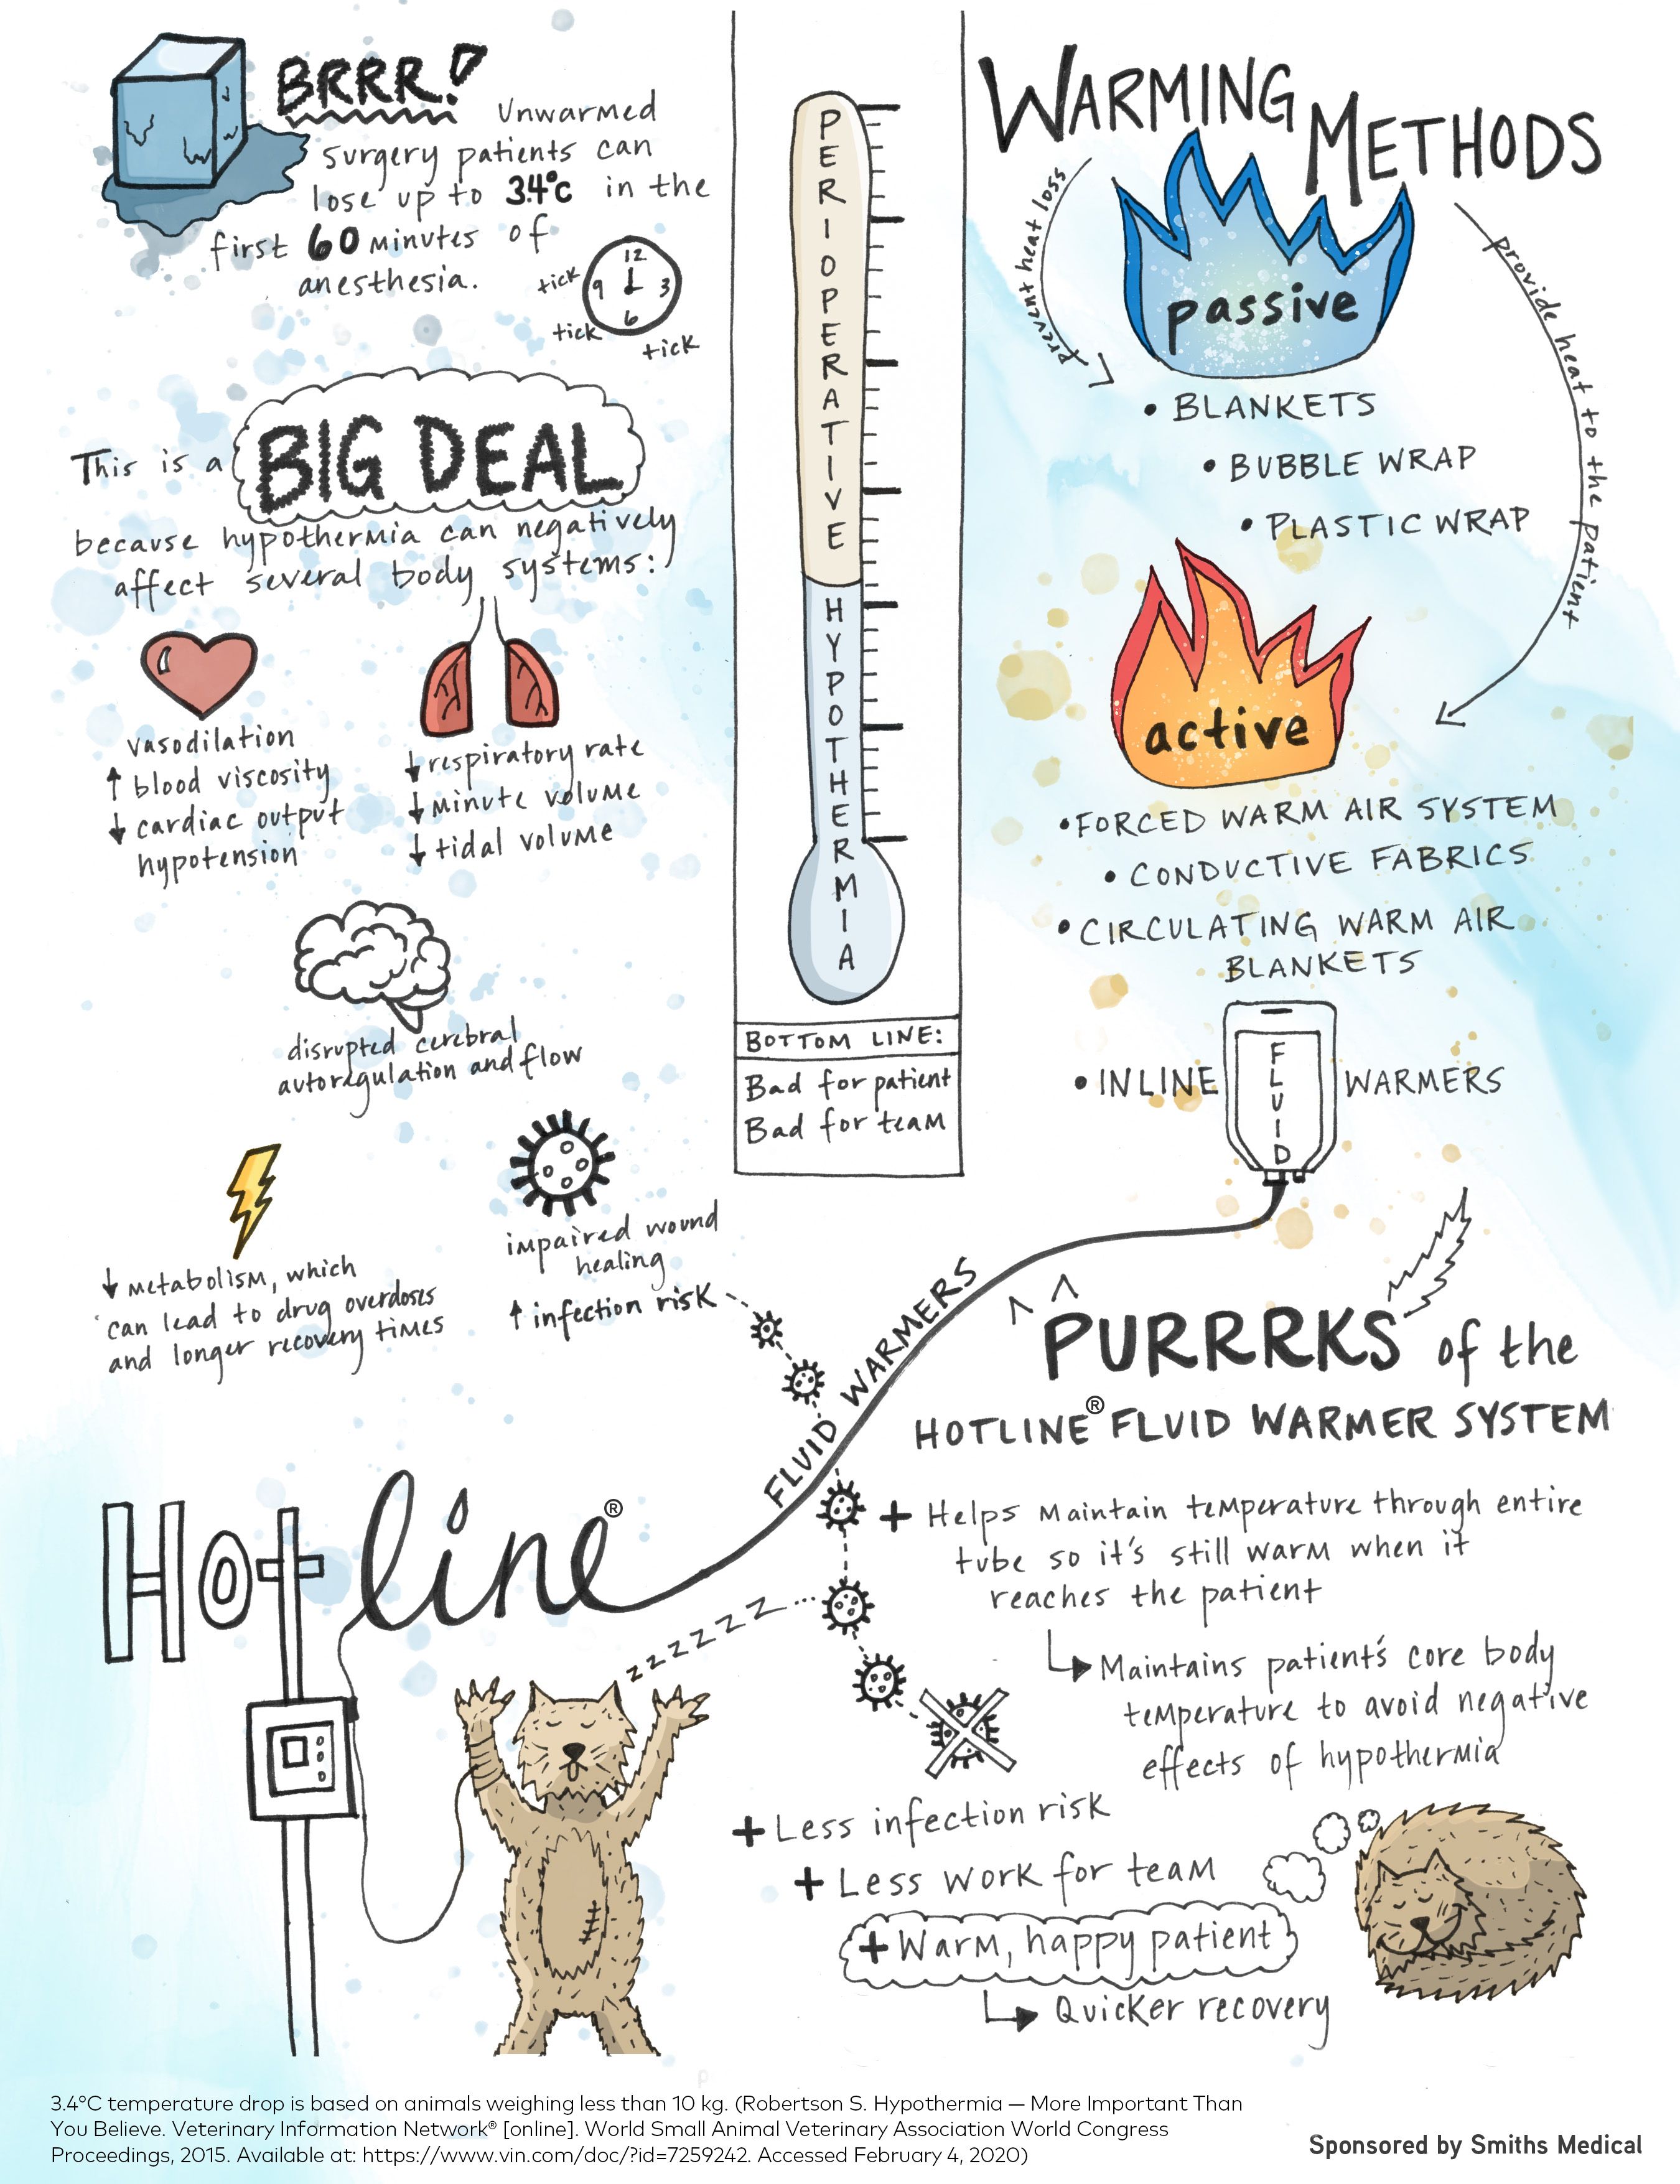 BRRR!
Unwarmed
surgery patients can
lose up to 3.4°C in the
first 60 minutes of
anesthesia.
12
3
6
9
tick
tick
tick
This is a BIG DEAL
because hypothermia can negatively
affect several body systems:
vasodilation
↑ blood viscosity
↓ cardiac output
hypotension
↓ respiratory rate
↓ minute volume
↓ tidal volume
disrupted cerebral
autoregulation and flow
↓ metabolism, which
can lead to drug overdoses
and longer recovery times
impaired wound
healing
↑ infection risk
PERIOPERATIVE
HYPOTHERMIA
BOTTOM LINE:
Bad for patient
Bad for team
WARMING METHODS
prevent heat loss
passive
• BLANKETS
• BUBBLE WRAP
• PLASTIC WRAP
provide heat to the patient
active
• FORCED WARM AIR SYSTEM
• CONDUCTIVE FABRICS
• CIRCULATING WARM AIR
BLANKETS
• INLINE FLUID WARMERS
FLUID WARMERS
Hotline®
zzzzzzz...
PURRRKS of the
HOTLINE® FLUID WARMER SYSTEM
+ Helps maintain temperature through entire
tube so it's still warm when it
reaches the patient
↳ Maintains patient's core body
temperature to avoid negative
effects of hypothermia
+ Less infection risk
+ Less work for team
+ Warm, happy patient
↳ Quicker recovery
3.4°C temperature drop is based on animals weighing less than 10 kg. (Robertson S. Hypothermia — More Important Than
You Believe. Veterinary Information Network® [online]. World Small Animal Veterinary Association World Congress
Proceedings, 2015. Available at: https://www.vin.com/doc/?id=7259242. Accessed February 4, 2020)
Sponsored by Smiths Medical